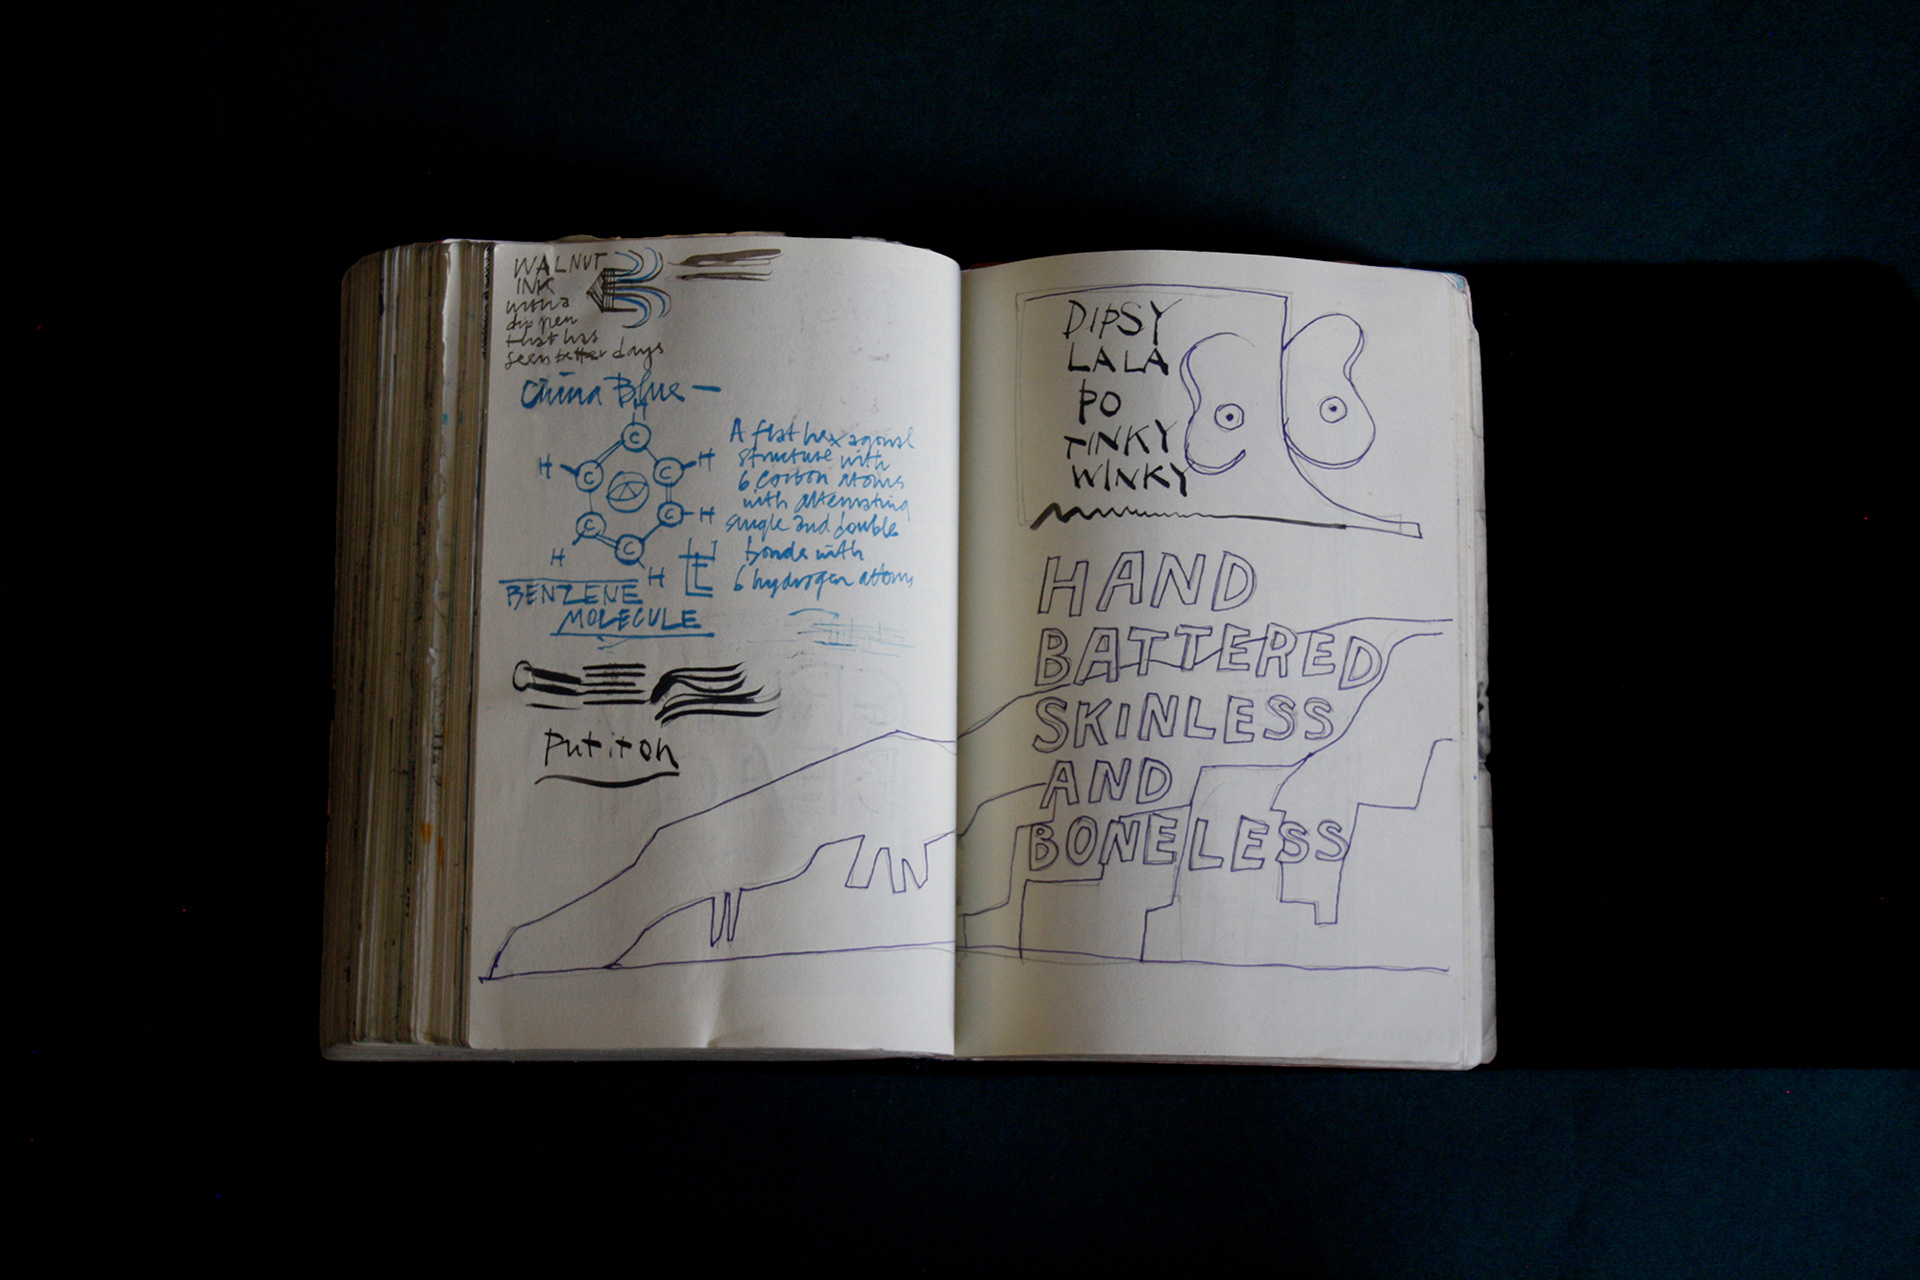 WALNUT
INK
with a
dip pen
that has
seen better days
China Blue —
H
C
H
C
C
H
C
H
C
C
H
H
A flat hexagonal
structure with
6 carbon atoms
with alternating
single and double
bonds with
6 hydrogen atoms
BENZENE
MOLECULE
Put it on
DIPSY
LALA
PO
TINKY
WINKY
HAND
BATTERED
SKINLESS
AND
BONELESS